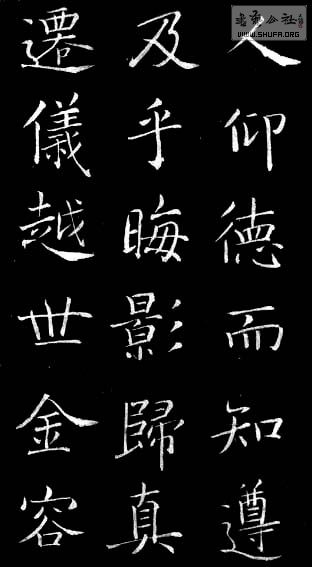 人仰德而知遵
及乎晦影歸真
遷儀越世金容
書法公社
WWW.SHUFA.ORG